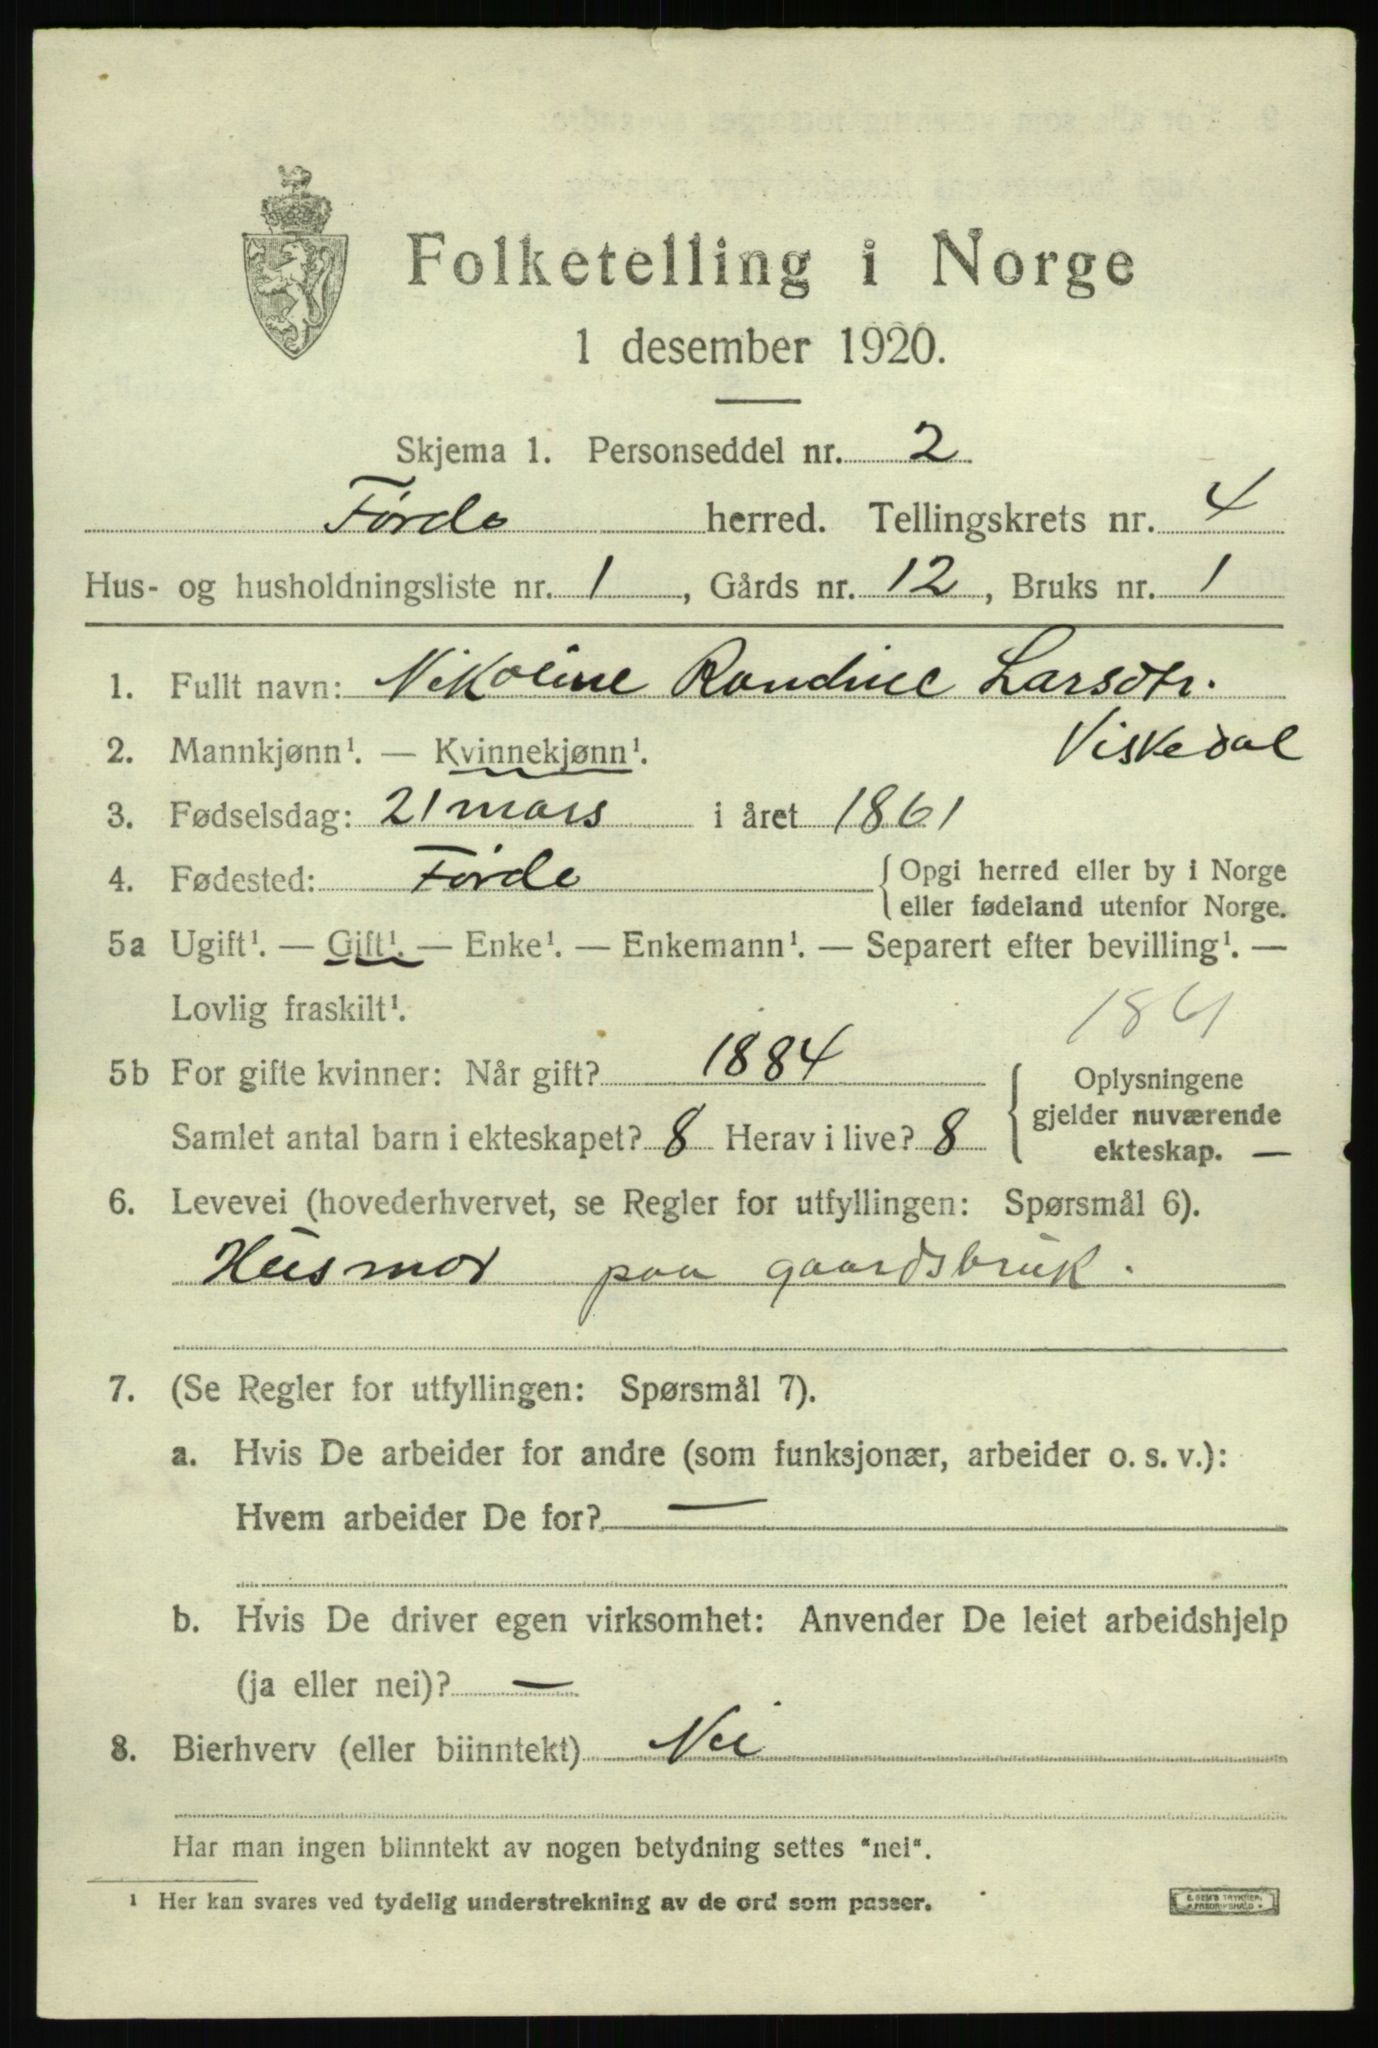 Folketelling i Norge
1 desember 1920.
Skjema 1. Personseddel nr. 2
Førde herred. Tellingskrets nr. 4
Hus- og husholdningsliste nr. 1, Gårds nr. 12, Bruks nr. 1
1. Fullt navn: Nikoline Randine Larsdtr.
Viskedal
2. Mannkjønn¹. — Kvinnekjønn¹.
3. Fødselsdag: 21 mars i året 1861
4. Fødested: Førde { Opgi herred eller by i Norge
eller fødeland utenfor Norge.
5a Ugift¹. — Gift¹. — Enke¹. — Enkemann¹. — Separert efter bevilling¹. —
Lovlig fraskilt¹.
1861
5b For gifte kvinner: Når gift? 1884
Samlet antal barn i ekteskapet? 8 Herav i live? 8
{ Oplysningene
gjelder nuværende
ekteskap. —
6. Levevei (hovederhvervet, se Regler for utfyllingen: Spørsmål 6).
Husmor paa gaardsbruk.
7. (Se Regler for utfyllingen: Spørsmål 7).
a. Hvis De arbeider for andre (som funksjonær, arbeider o. s. v.):
Hvem arbeider De for? —
b. Hvis De driver egen virksomhet: Anvender De leiet arbeidshjelp
(ja eller nei)? —
8. Bierhverv (eller biinntekt) Nei
Har man ingen biinntekt av nogen betydning settes "nei".
¹ Her kan svares ved tydelig understrekning av de ord som passer.